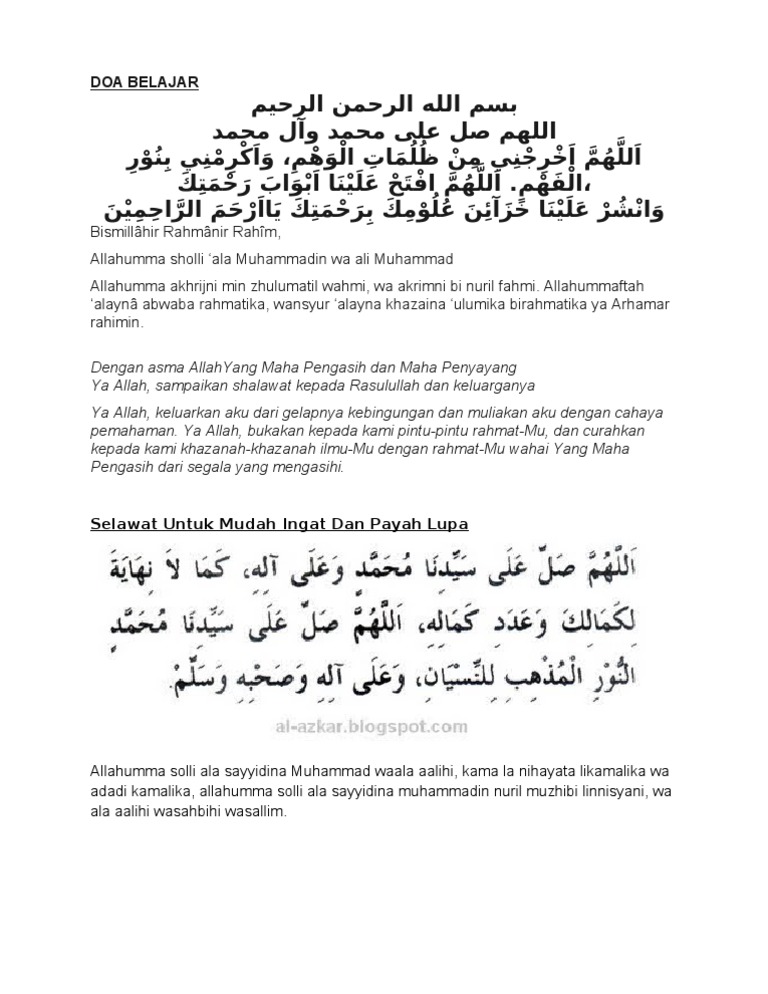 DOA BELAJAR
بسم الله الرحمن الرحيم
اللهم صل على محمد وآل محمد
اَللَّهُمَّ اَخْرِجْنِي مِنْ ظُلُمَاتِ الْوَهْمِ، وَاَكْرِمْنِي بِنُوْرِ
الْفَهْمِ. اَللَّهُمَّ افْتَحْ عَلَيْنَا اَبْوَابَ رَحْمَتِكَ،
وَانْشُرْ عَلَيْنَا خَزَآئِنَ عُلُوْمِكَ بِرَحْمَتِكَ يَااَرْحَمَ الرَّاحِمِيْنَ
Bismillâhir Rahmânir Rahîm,
Allahumma sholli ‘ala Muhammadin wa ali Muhammad
Allahumma akhrijni min zhulumatil wahmi, wa akrimni bi nuril fahmi. Allahummaftah
‘alaynâ abwaba rahmatika, wansyur ‘alayna khazaina ‘ulumika birahmatika ya Arhamar
rahimin.
Dengan asma AllahYang Maha Pengasih dan Maha Penyayang
Ya Allah, sampaikan shalawat kepada Rasulullah dan keluarganya
Ya Allah, keluarkan aku dari gelapnya kebingungan dan muliakan aku dengan cahaya
pemahaman. Ya Allah, bukakan kepada kami pintu-pintu rahmat-Mu, dan curahkan
kepada kami khazanah-khazanah ilmu-Mu dengan rahmat-Mu wahai Yang Maha
Pengasih dari segala yang mengasihi.
Selawat Untuk Mudah Ingat Dan Payah Lupa
اَللَّهُمَّ صَلِّ عَلَى سَيِّدِنَا مُحَمَّدٍ وَعَلَى آلِهِ، كَمَا لاَ نِهَايَةَ
لِكَمَالِكَ وَعَدَدِ كَمَالِهِ، اَللَّهُمَّ صَلِّ عَلَى سَيِّدِنَا مُحَمَّدٍ
النُّوْرِ الْمُذْهِبِ لِلنِّسْيَانِ، وَعَلَى آلِهِ وَصَحْبِهِ وَسَلِّمْ.
al-azkar.blogspot.com
Allahumma solli ala sayyidina Muhammad waala aalihi, kama la nihayata likamalika wa
adadi kamalika, allahumma solli ala sayyidina muhammadin nuril muzhibi linnisyani, wa
ala aalihi wasahbihi wasallim.